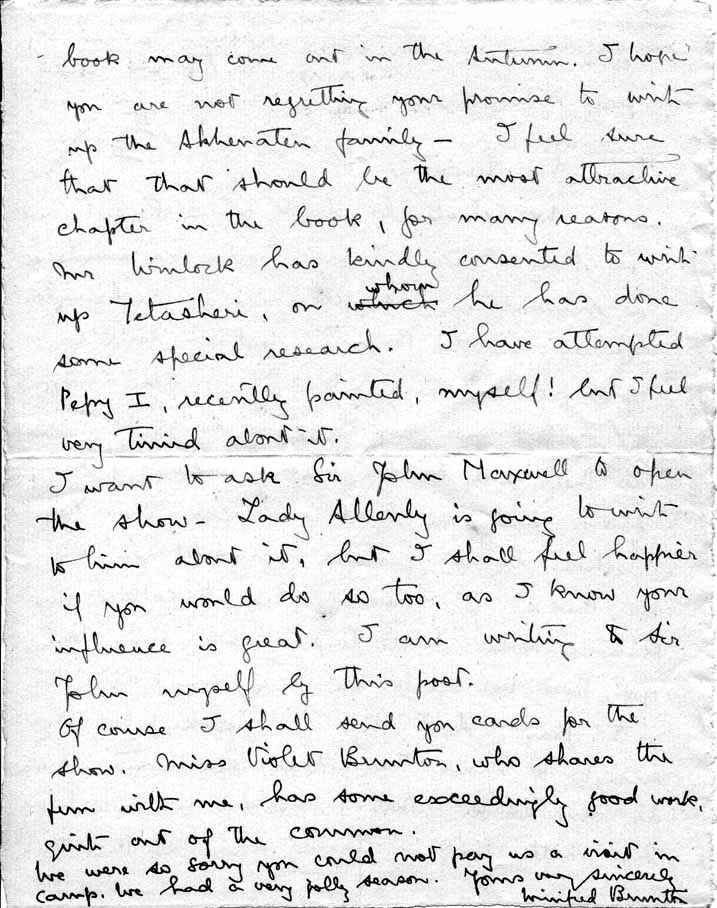 book may come out in the Autumn. I hope
you are not regretting your promise to write
up the Akhenaten family – I feel sure
that that should be the most attractive
chapter in the book, for many reasons.
Mr Winlock has kindly consented to write
up Tetasheri, on which whom he has done
some special research. I have attempted
Pepy I, recently painted, myself! but I feel
very timid about it.
I want to ask Sir John Maxwell to open
the show – Lady Allenby is going to write
to him about it, but I shall feel happier
if you would do so too, as I know your
influence is great. I am writing to Sir
John myself by this post.
Of course I shall send you cards for the
show. Miss Violet Brunton, who shares the
fun with me, has some exceedingly good work,
quite out of the common.
We were so sorry you could not pay us a visit in
camp. We had a very jolly season. Yours very sincerely
Winifred Brunton